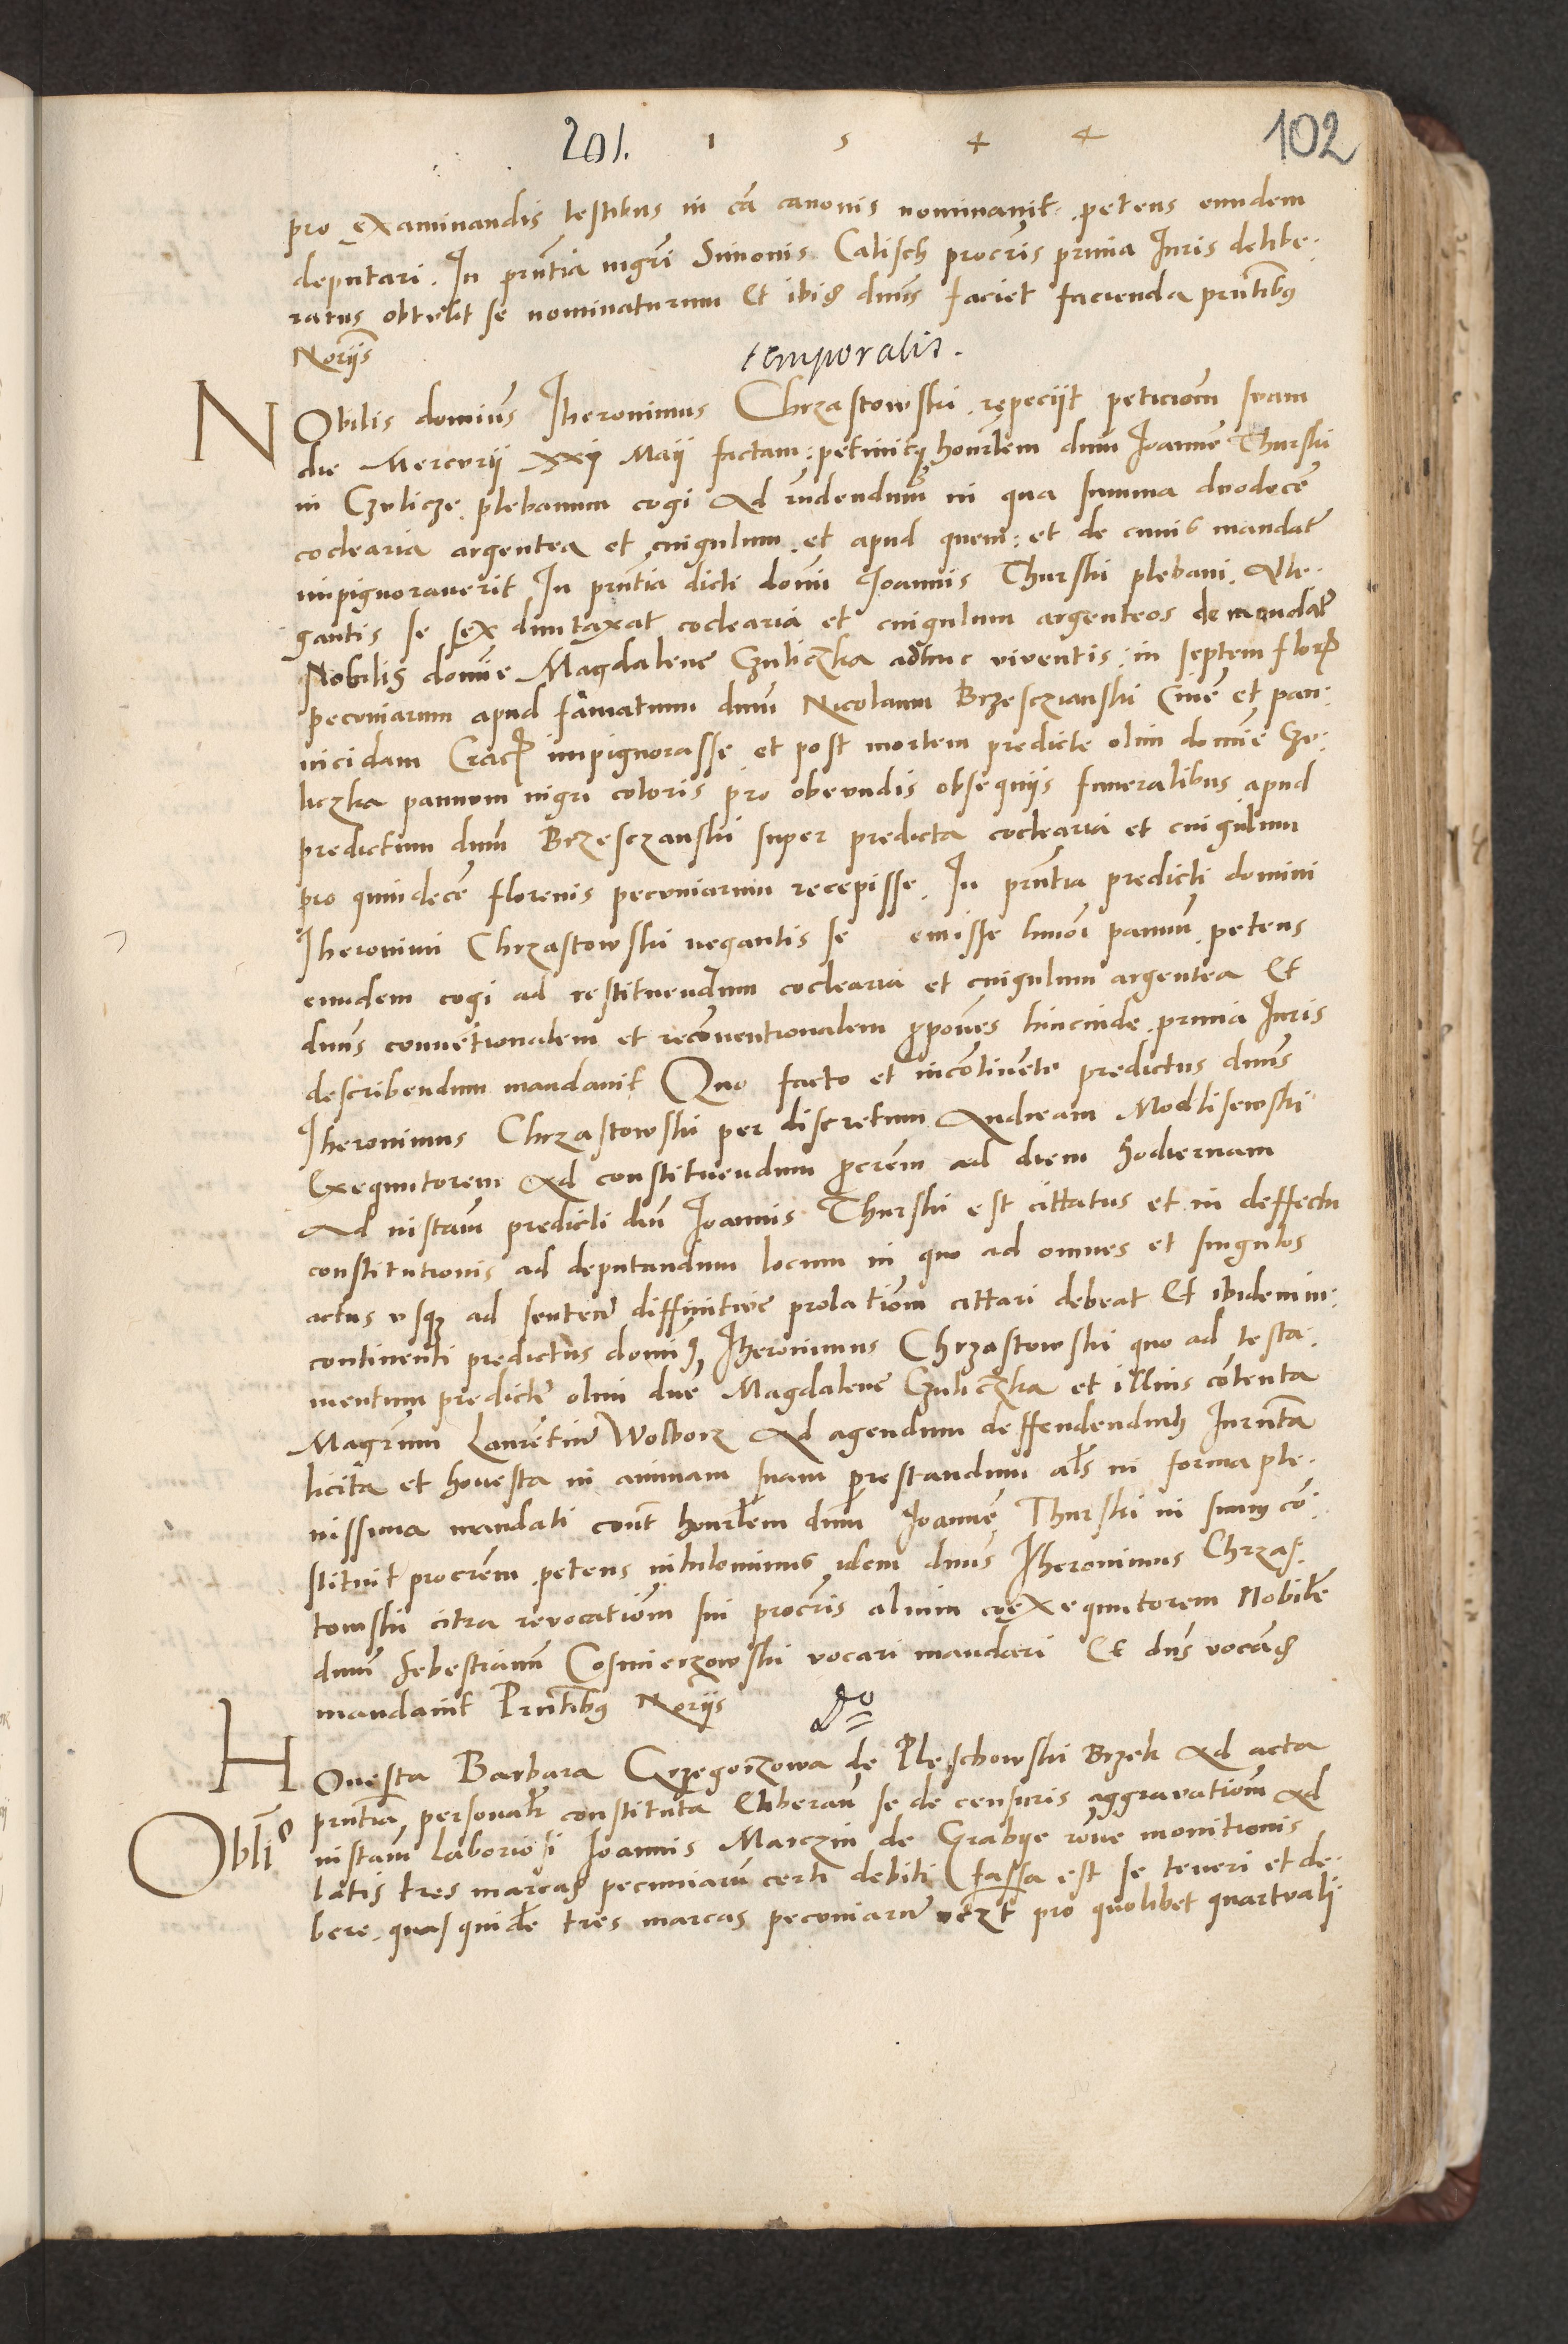 201. 1 5 4 4 102
pro examinandis testibus in cã canonis nominavit. petens eundem
deputari. In prn̄tia mgr̄i Simonis Calisch procr̄is prima Iuris delibe-
ratus obtulit se nominaturum Et ibid dnūs faciet facienda prn̄tibus
Norijs
temporalis.
NObilis dominus Iheronimus Chrzastowski. repeciit peticiom̄ suam
die Mercurij xxj Maij factam: petiuitq honrlem dnm̄ Ioannē Thurski
in Czulicze plebanum cogi Ad rn̄dendum in qua summa duodecē
coclearia argentea et cingulum. et apud quem: et de cuius mandatr
impignoraverit In prn̄tia dicti domi Ioannis Thurski plebani. Alle-
gantis se sex duntaxat coclearia et cingulum argenteos de mandatr
Nobilis domine Magdalene Czuliczka adhuc viventis: in septem flor
pecuniarum apud famatum dnm̄ Nicolaum Brzesczianski Civē et pan-
nicidam Crac impignorasse et post mortem predicte olim domine Czu-
liczka pannum nigri coloris pro obeundis obsequiis funeralibus apud
predictum dnm̄ Brzesczanski super predicta coclearia et cingulum
pro quindecē florenis pecuniarum recepisse. In prn̄tia predicti domini
Iheronimi Chrzastowski negantis se emisse hmōi pannum petens
eundem cogi ad restituendum coclearia et cingulum argentea Et
dnūs conuētionalem et recōventionalem ppones hincinde prima Iuris
describendum mandavit Quo facto et incōtinēte predictus dnūs
Iheronimus Chrzastowski per discretum Andream Modlisewski
Exequutorem Ad constituendum pcrem̄ ad diem hodiernam
Ad nistam̄ predicti dnī Ioannis Thurski est cittatus et in deffectu
constitutionis ad deputandum locum in quo ad omnes et singulos
actus usq ad senten̄ diffinitive prolatiom̄ cittari debeat Et ibidem in-
continenti predictus domi Iheronimus Chrzastowski quo ad testa-
mentum predicte olim dne Magdalene Czuliczka et illius cōtenta
Magr̄um Laurētiū Wolborz Ad agendum deffendendum Iurn̄ta
licita et honesta in animam suam prestandum als̄ in forma ple-
nissima mandati cont̄ honrlem dnm̄ Ioannē Thurski in suum cō-
stituit procrem̄ petens nihilominus idem dnūs Iheronimus Chrzas-
towski citra revocatiom̄ sui procr̄is alium coexequutorem Nobilē
dnm̄ Sebestianū Cosmierzowski vocari mandari Et dns̄ vocand
mandavit Prn̄tibus Norijs
HOnesta Barbara Grzegorzowa de Pleschowski Brzek Ad acta
prn̄tia personalr constituta liberan̄ se de censuris aggravatiom̄ Ad
Obli
nistam̄ laboriosi Ioannis Marczin de Grabye rōne monitionis
latis tres marcas pecuniarū certi debiti fassa est se teneri et de-
bere. quasquidē tres marcas pecuniarū pro quolibet quartuali